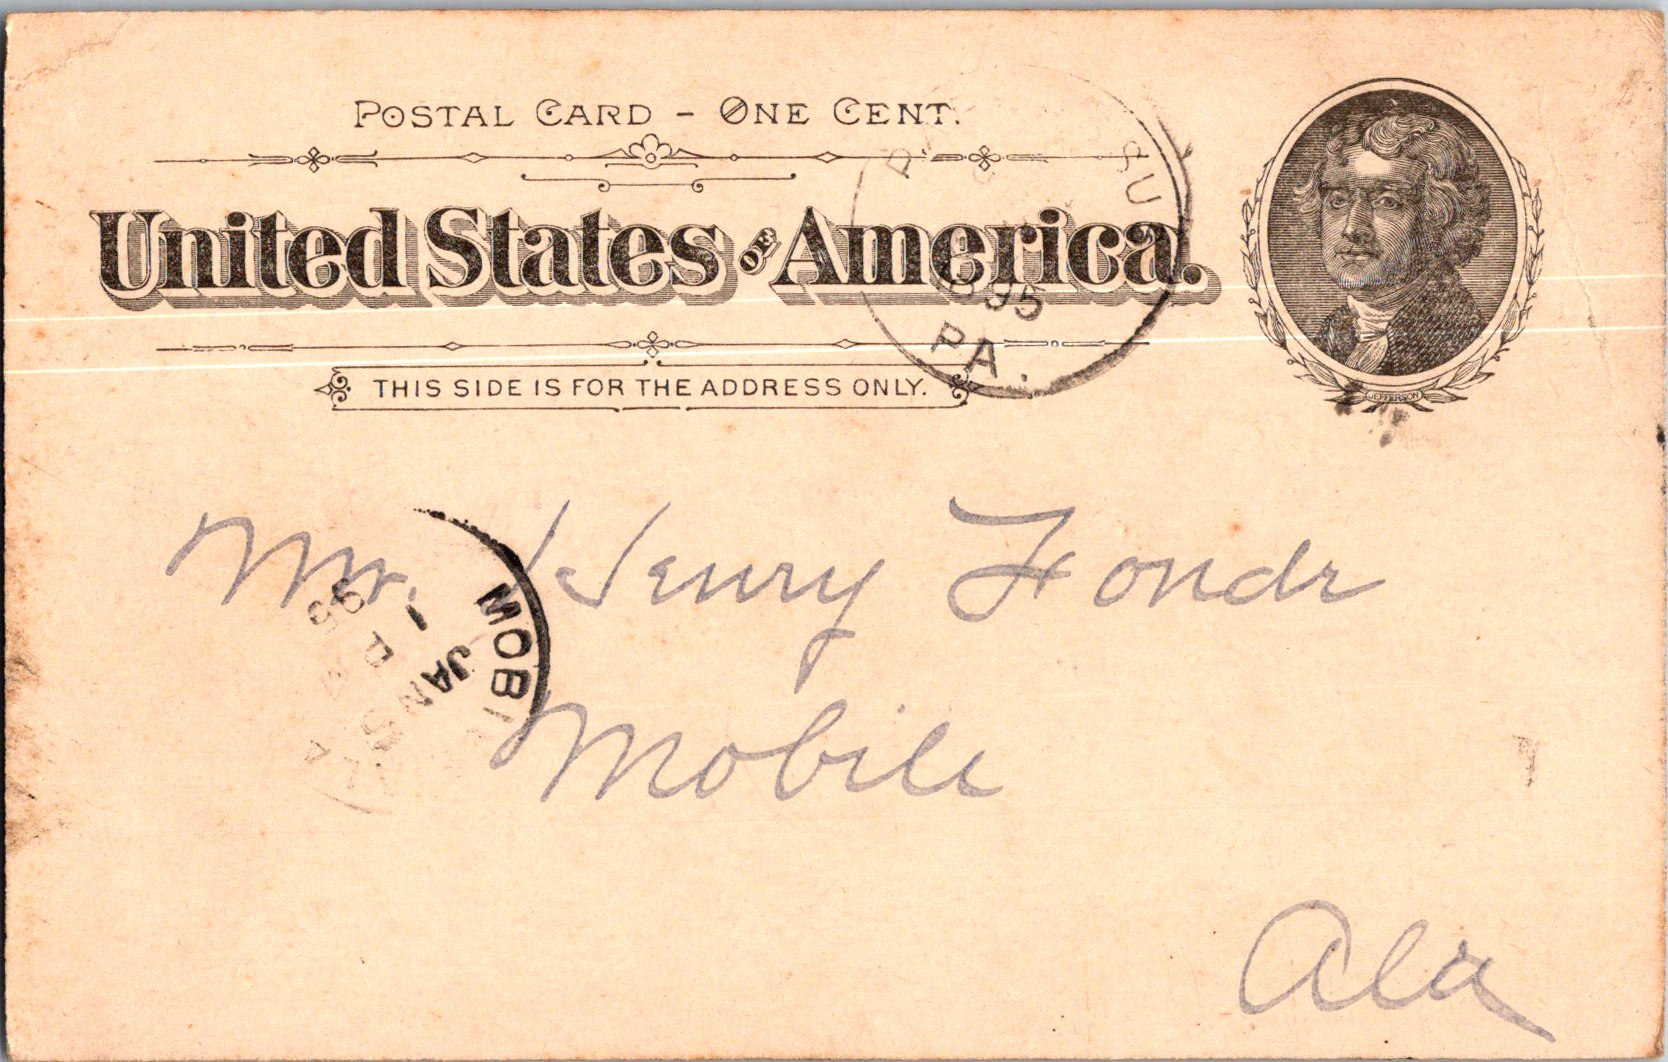 POSTAL CARD - ONE CENT.
United States OF America.
THIS SIDE IS FOR THE ADDRESS ONLY.
JEFFERSON
PA.
MOBI
JAN 5
1
95
Mr. Henry Fondr
Mobile
Ala